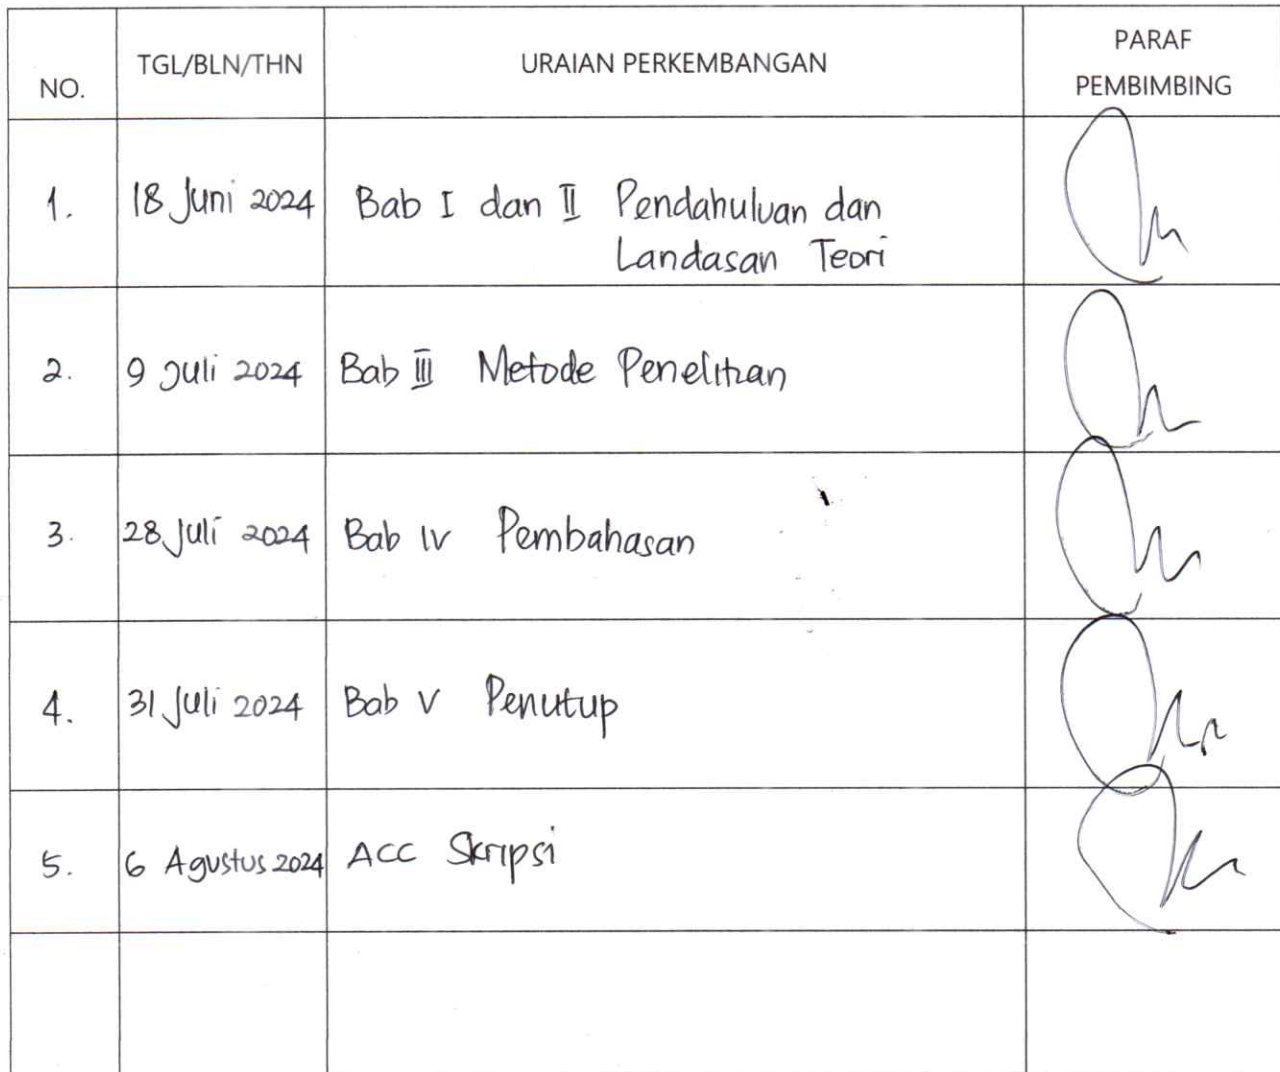 NO. TGL/BLN/THN URAIAN PERKEMBANGAN PARAF
PEMBIMBING
1. 18 Juni 2024 Bab I dan II Pendahuluan dan
Landasan Teori
2. 9 Juli 2024 Bab III Metode Penelitian
3. 28 Juli 2024 Bab IV Pembahasan
4. 31 Juli 2024 Bab V Penutup
5. 6 Agustus 2024 ACC Skripsi